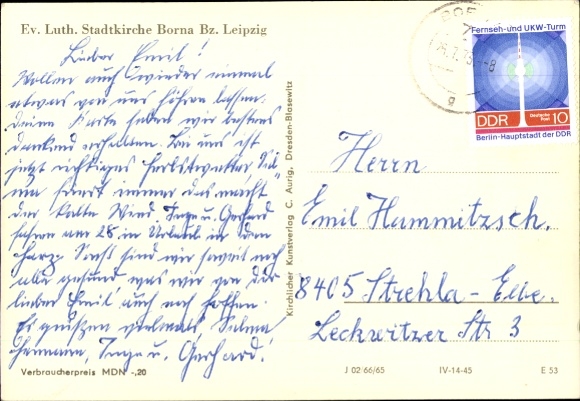 Ev. Luth. Stadtkirche Borna Bz. Leipzig
Lieber Emil!
Wollen auch wieder einmal
etwas von uns hören lassen.
Deine Karte haben wir bestens
dankend erhalten. Bei uns ist
jetzt richtiges Herbstwetter
friert immer das macht
der kalte Wind. Inge u. Gerhard
fahren am 28. in Urlaub in den
Harz. Sonst sind wir soweit noch
alle gesund was wir von dir
lieber Emil auch noch hoffen.
Es grüßen vielmals Selma
Hermann, Inge u. Gerhard!
Verbraucherpreis MDN -,20
Kirchlicher Kunstverlag C. Aurig, Dresden-Blasewitz
Fernseh- und UKW-Turm
DDR
Deutsche Post
10
Berlin-Hauptstadt der DDR
Herrn
Emil Hammitzsch.
8405 Strehla-Elbe.
Leckwitzer Str 3
J 02/66/65
IV-14-45
E 53